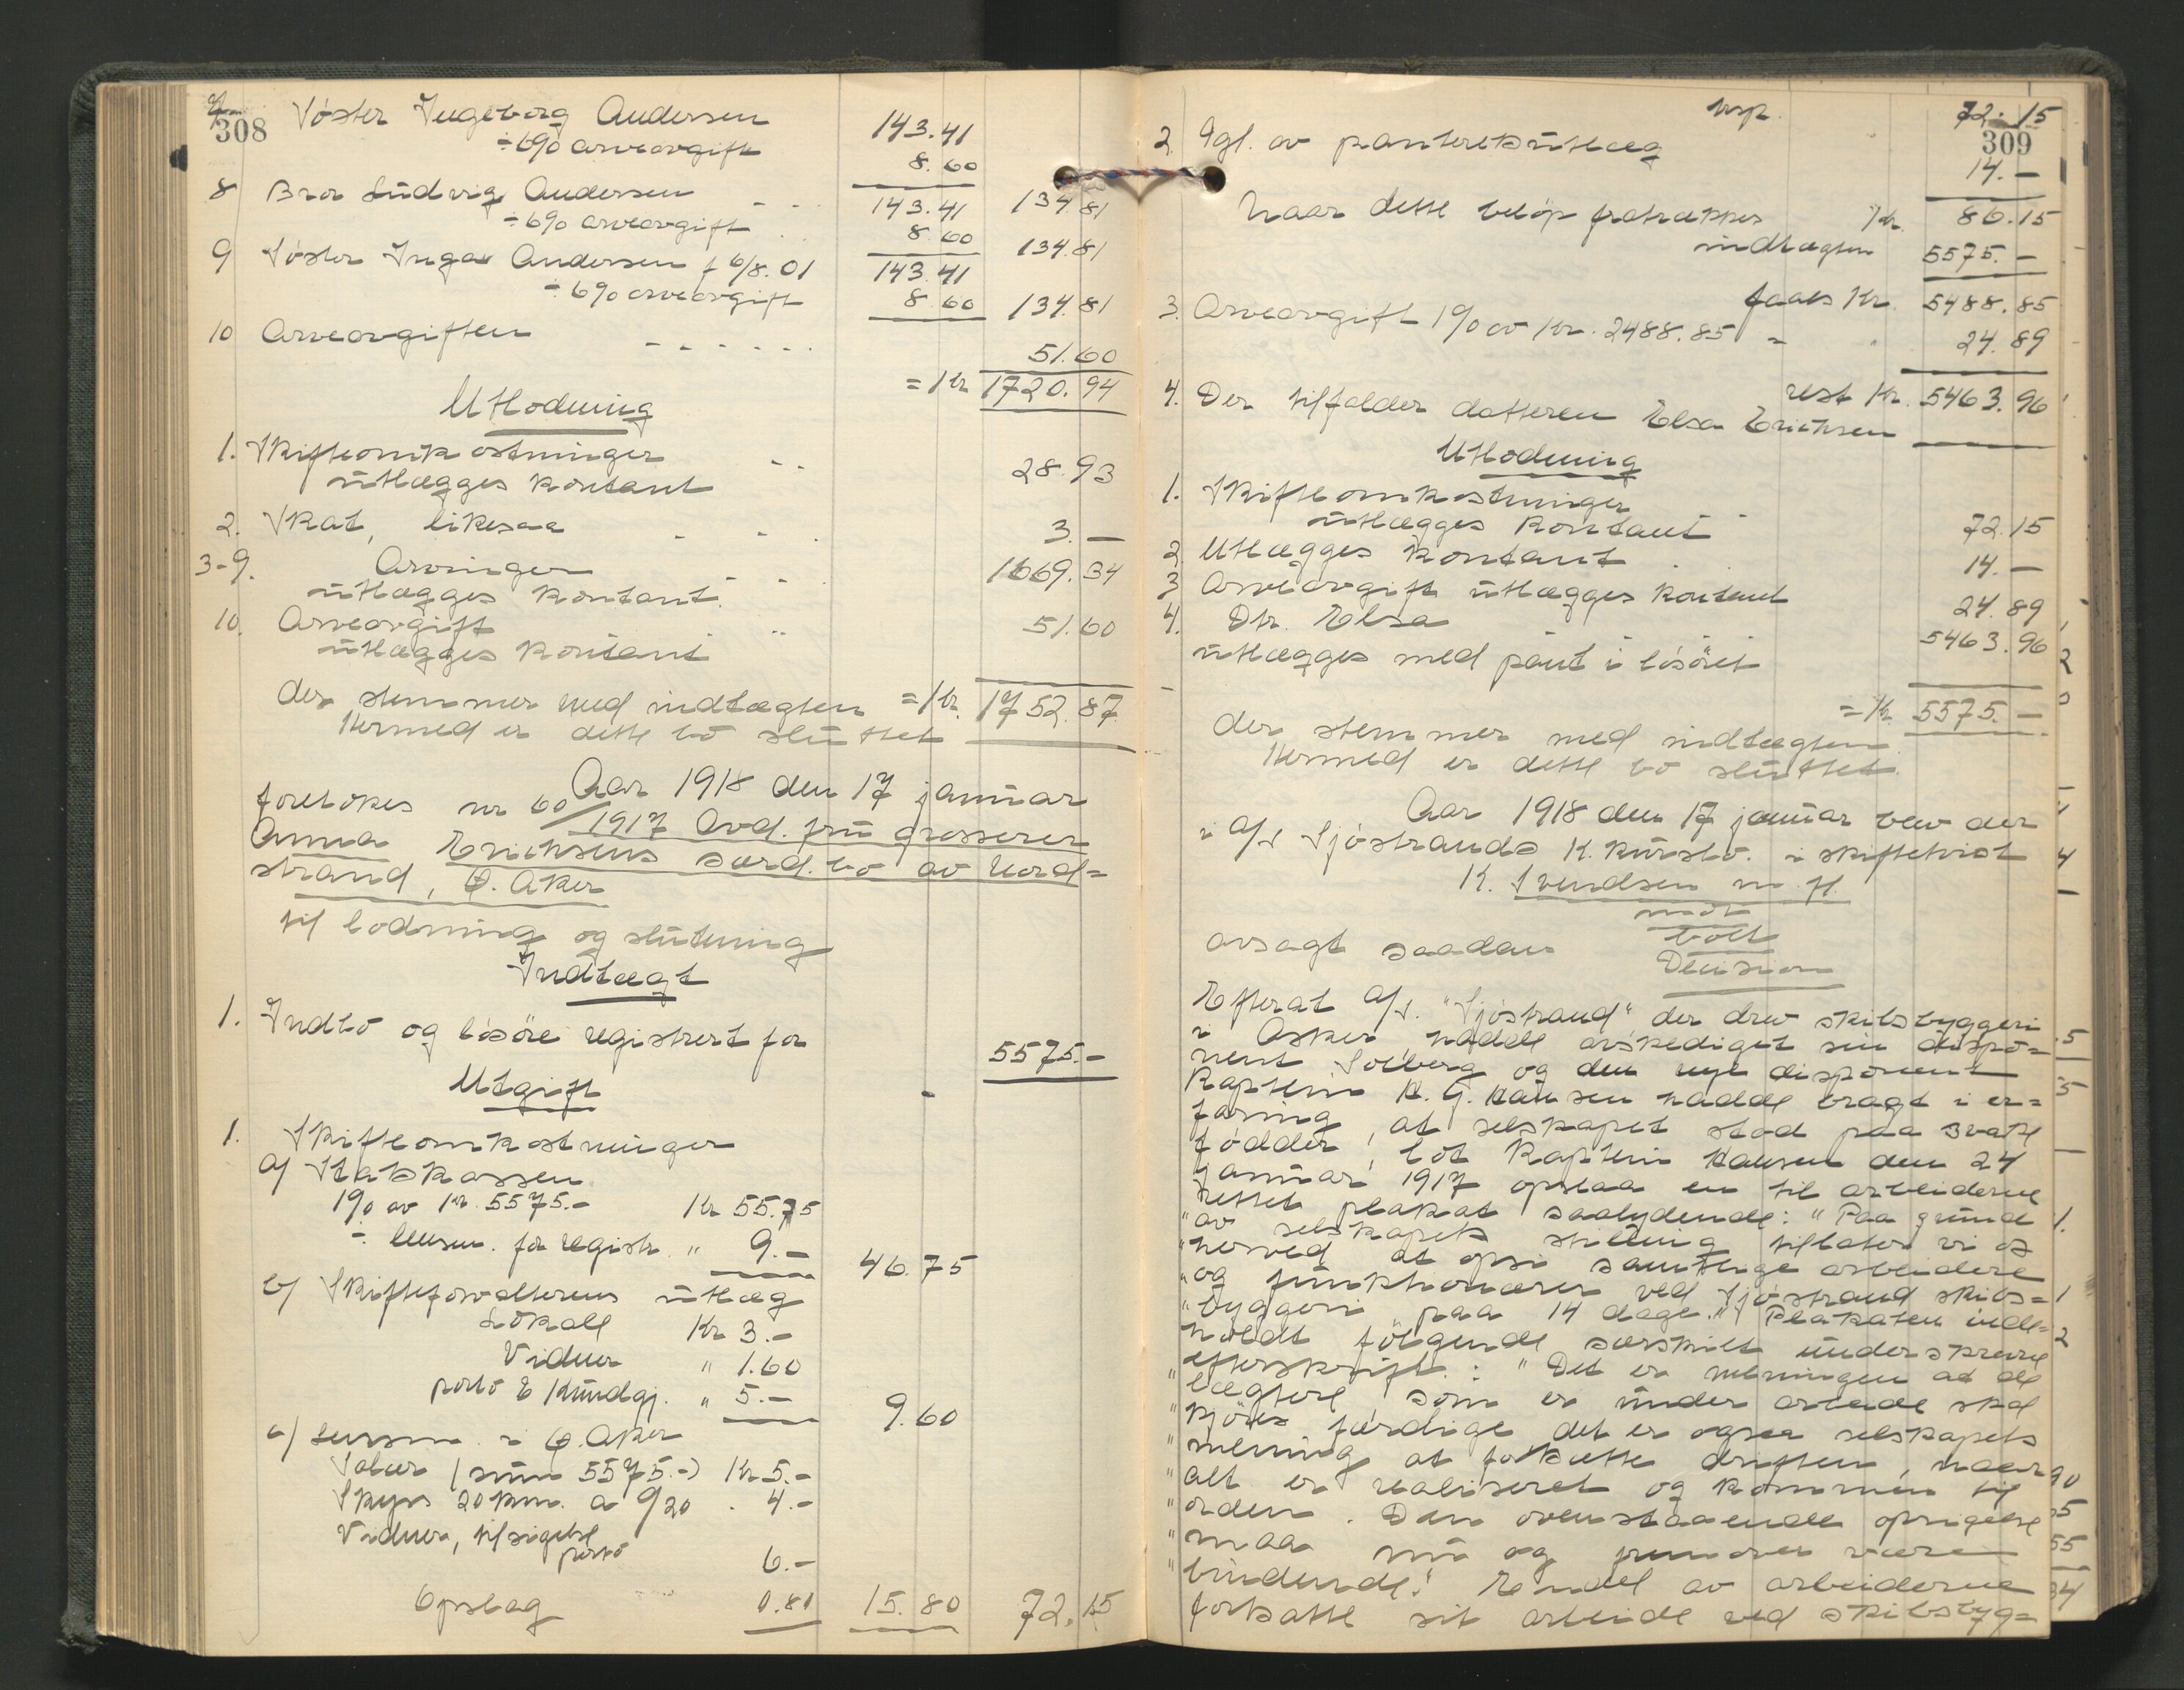 308
7 Søster Ingeborg Andersen 143.41
÷ 6% arveavgift 8.60 134.81
8 Bror Ludvig Andersen - - 143.41
÷ 6% arveavgift 8.60 134.81
9 Søster Inga Andersen f 6/8.01 143.41
÷ 6% arveavgift 8.60 134.81
10 Arveavgiften - - - - - - 51.60
= Kr 1720.94
Utlodning
1. Skifteomkostninger - -
utlægges kontant 28.93
2. Skat, likesaa - - - 3.—
3-9. Arvinger - - -
utlægges kontant. 1669.34
10. Arveavgift "
utlægges kontant 51.60
der stemmer med indtægten = Kr. 1752.87
Hermed er dette bo sluttet
Aar 1918 den 17 januar
foretokes nr 60/1917 Avd. fru grosserer
Anna Erichsens særd. bo av Nord=
strand, Ø. Aker
til lodning og slutning
Indtægt
1. Indbo og løsøre registrert for 5575.—
Utgift
1. Skifteomkostninger
a) Statskassen
1% av Kr. 5575.— Kr 55.75
÷ lensm. for registr. " 9.— 46.75
b) Skifteforvalterens utlæg
Lokale Kr 3.—
Vidner " 1.60
porto & Kundgj. " 5.— 9.60
c) Lensm. i Ø. Aker
Salær (sum 5575.—) Kr 5.—
Skyss 20 km. a 0/20 . 4.—
Vidner, tilsigelse
porto 6.—
Opslag 0.80 15.80 72.15
309
trsp. 72.15
2. Tgl. av panteretsutlæg 14.—
Kr. 86.15
Naar dette beløp fratrækkes
indtægten 5575.—
faaes Kr. 5488.85
3. Arveavgift 1% av Kr. 2488.85 " 24.89
rest Kr. 5463.96
4. Der tilfalder datteren Elsa Erichsen
Utlodning
1. Skifteomkostninger
utlægges kontant 72.15
2. Utlægges kontant . . 14.—
3 Arveavgift utlægges kontant 24.89
4. Dtr. Elsa
utlægges med pant i løsøret 5463.96
= Kr. 5575.—
der stemmer med indtægten.
Hermed er dette bo sluttet.
Aar 1918 den 17 januar blev der
i A/S Sjøstrands K. kursbo. i skifteretst
K. Svendsen m. fl.
mot
boet
avsagt saadan Decision
Efterat A/S. "Sjøstrand" der drev skibsbyggeri
i Asker hadde avskediget sin dispo=
nent Solberg og den nye disponent
Kaptein H. G. Hansen hadde bragt i er=
faring, at selskapet stod paa svake
fødder, lot Kaptein Hansen den 24
januar 1917 opslaa en til arbeiderne
rettet plakat saalydende: "Paa grund
"av selskapets stilling tillater vi os
"herved at opsi samtlige arbeidere
"og funktionærer ved Sjøstrand skibs=
"byggeri paa 14 dage." Plakaten inde=
holdt følgende særskilt underskrevne
efterskrift: "Det er meningen at de
"lægtere som er under arbeide skal
"kjøres færdige det er ogsaa selskapets
"mening at fortsætte driften, naar
"alt er realiseret og kommen til
"orden. Den ovenstaaende opsigelse
"maa nu og fremover være
"bindende." Endel av arbeiderne
fortsatte sit arbeide ved skibsbyg=